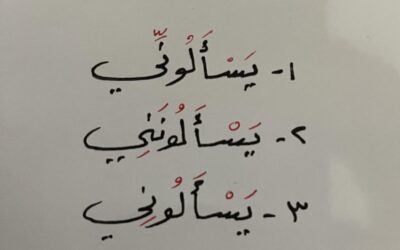 ١- يَسْأَلُونِّي
٢- يَسْأَلُونَنِي
٣- يَسْأَلُونِي